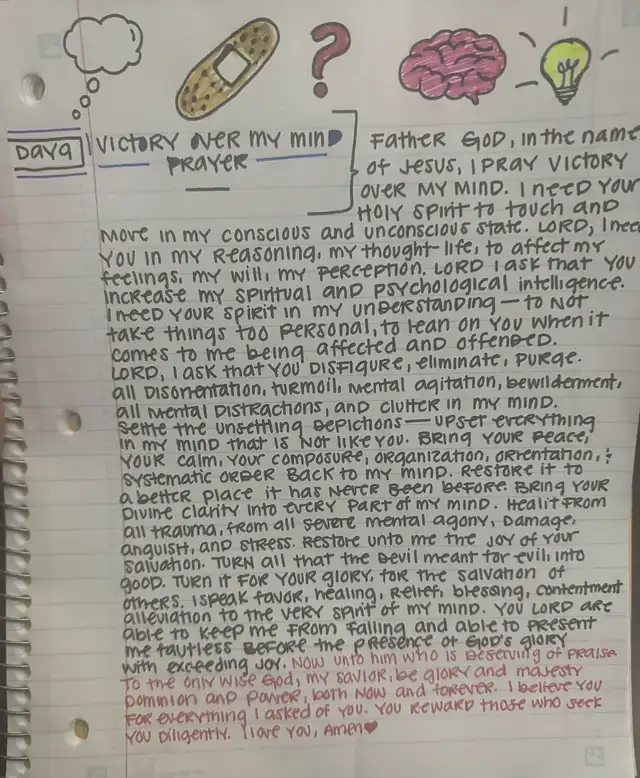 ?
DAY 9
VICTORY OVER MY MIND
PRAYER
FATHER GOD, IN THE NAME
OF JESUS, I PRAY VICTORY
OVER MY MIND. I NEED YOUR
HOLY SPIRIT TO TOUCH AND
MOVE IN MY CONSCIOUS AND UNCONSCIOUS STATE. LORD, I NEED
YOU IN MY REASONING, MY THOUGHT LIFE, TO AFFECT MY
FEELINGS, MY WILL, MY PERCEPTION. LORD I ASK THAT YOU
INCREASE MY SPIRITUAL AND PSYCHOLOGICAL INTELLIGENCE.
I NEED YOUR SPIRIT IN MY UNDERSTANDING — TO NOT
TAKE THINGS TOO PERSONAL, TO LEAN ON YOU WHEN IT
COMES TO ME BEING AFFECTED AND OFFENDED.
LORD, I ASK THAT YOU DISFIGURE, ELIMINATE, PURGE.
ALL DISORIENTATION, TURMOIL, MENTAL AGITATION, BEWILDERMENT,
ALL MENTAL DISTRACTIONS, AND CLUTTER IN MY MIND.
SETTLE THE UNSETTLING DEPICTIONS — UPSET EVERYTHING
IN MY MIND THAT IS NOT LIKE YOU. BRING YOUR PEACE,
YOUR CALM, YOUR COMPOSURE, ORGANIZATION, ORIENTATION, &
SYSTEMATIC ORDER BACK TO MY MIND. RESTORE IT TO
A BETTER PLACE IT HAS NEVER BEEN BEFORE. BRING YOUR
DIVINE CLARITY INTO EVERY PART OF MY MIND. HEAL IT FROM
ALL TRAUMA, FROM ALL SEVERE MENTAL AGONY, DAMAGE,
ANGUISH, AND STRESS. RESTORE UNTO ME THE JOY OF YOUR
SALVATION. TURN ALL THAT THE DEVIL MEANT FOR EVIL, INTO
GOOD. TURN IT FOR YOUR GLORY, FOR THE SALVATION OF
OTHERS. I SPEAK FAVOR, HEALING, RELIEF, BLESSING, CONTENTMENT
ALLEVIATION TO THE VERY SPIRIT OF MY MIND. YOU LORD ARE
ABLE TO KEEP ME FROM FALLING AND ABLE TO PRESENT
ME FAUTLESS BEFORE THE PRESENCE OF GOD'S GLORY
WITH EXCEEDING JOY. NOW UNTO HIM WHO IS DESERVING OF PRAISE
TO THE ONLY WISE GOD, MY SAVIOR, BE GLORY AND MAJESTY
DOMINION AND POWER, BOTH NOW AND FOREVER. I BELIEVE YOU
FOR EVERYTHING I ASKED OF YOU. YOU REWARD THOSE WHO SEEK
YOU DILIGENTLY. I LOVE YOU, AMEN♥